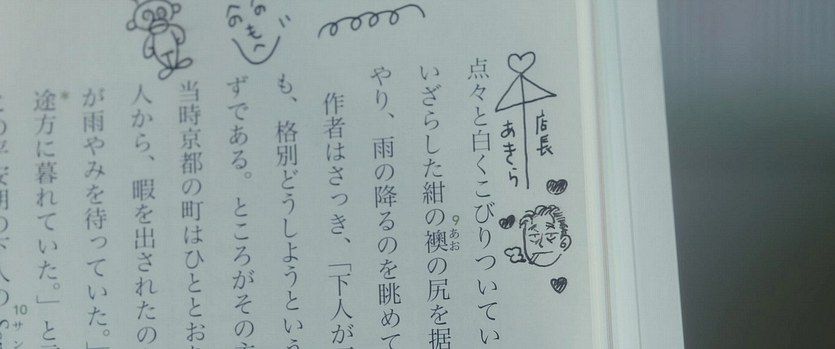 店長
あきら
点々と白くこびりついてい
いざらした紺の襖の尻を据
9あお
やり、雨の降るのを眺めて
作者はさっき、「下人が
も、格別どうしようという
ずである。ところがその
当時京都の町はひととお
人から、暇を出されたの
が雨やみを待っていた。」
*途方に暮れていた。」と
の平安朝の下人の
10サン